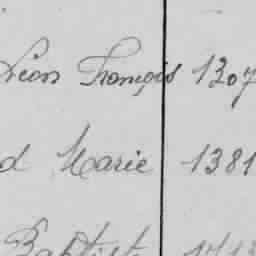 Léon François 1307
d Marie 1381
Baptiste 1713